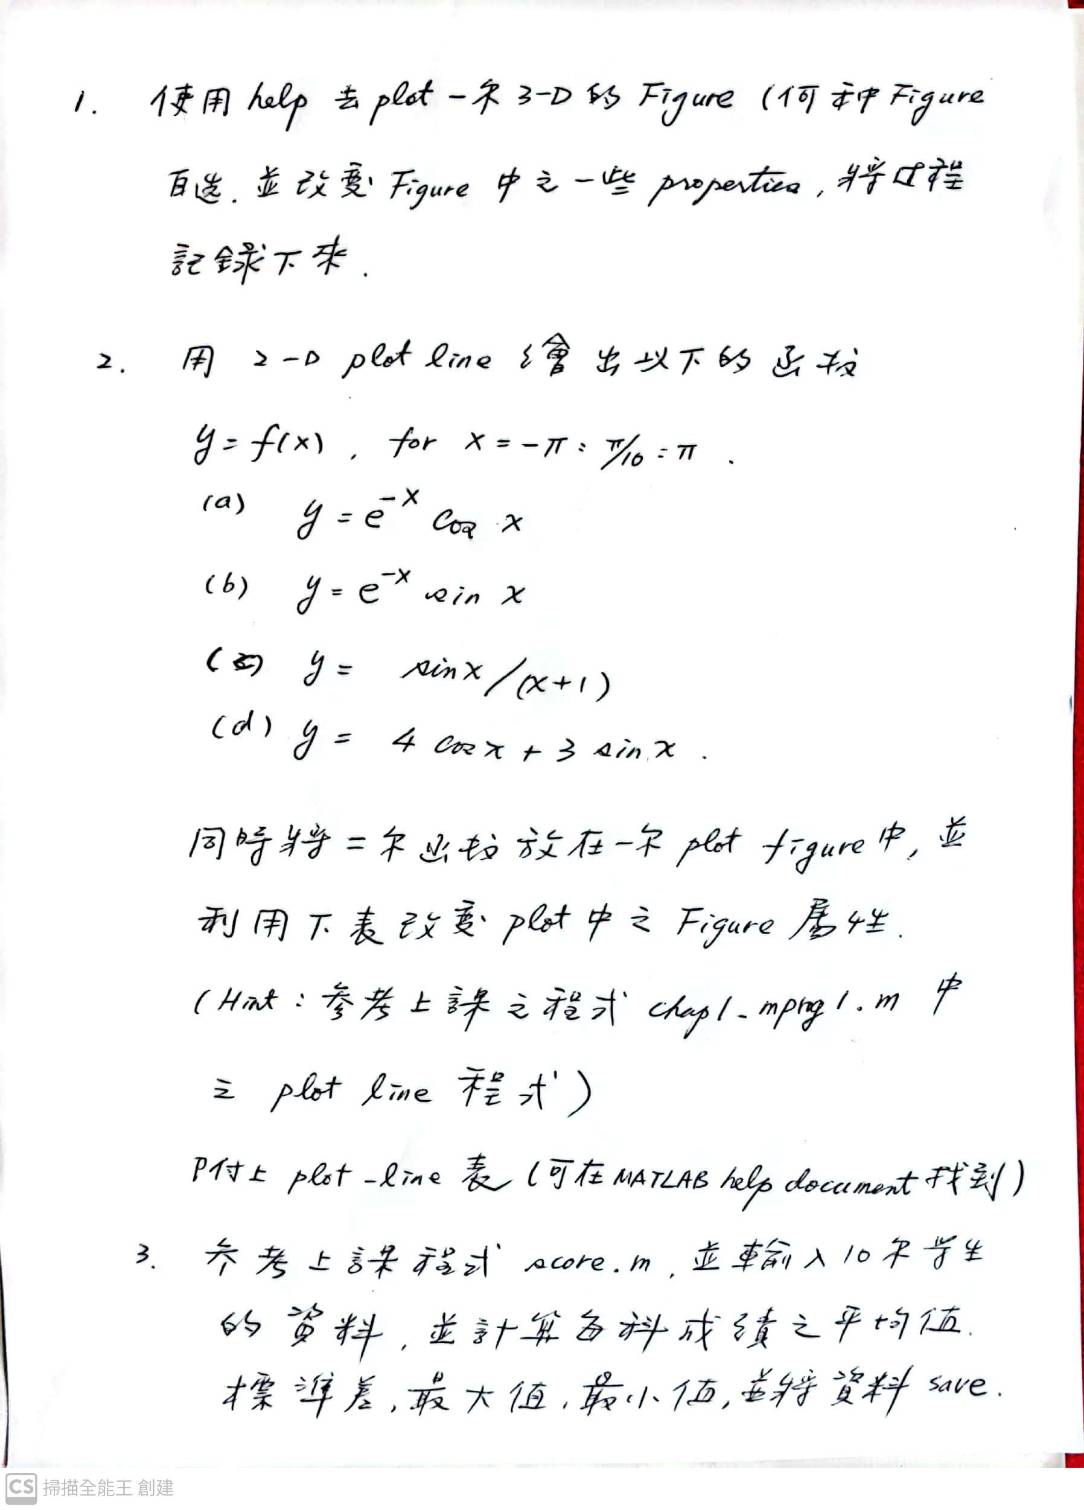 1. 使用 help 去 plot 一个 3-D 的 Figure (何种 Figure
自选. 並改变 Figure 中之一些 properties, 將过程
記錄下來.
2. 用 2-D plot line 繪出以下的函数
y = f(x), for x = -π : π/10 : π .
(a) y = e^-x cos x
(b) y = e^-x sin x
(c) y = sin x / (x+1)
(d) y = 4 cos x + 3 sin x .
同時將二个函数放在一个 plot figure 中, 並
利用下表改变 plot 中之 Figure 屬性.
(Hint : 参考上課之程式 chap1_mprog1.m 中
之 plot line 程式)
附上 plot-line 表 (可在 MATLAB help document 找到)
3. 参考上課程式 score.m, 並輸入 10 个学生
的資料, 並計算每科成績之平均值.
標準差, 最大值, 最小值, 並將資料 save.
CS 掃描全能王 創建